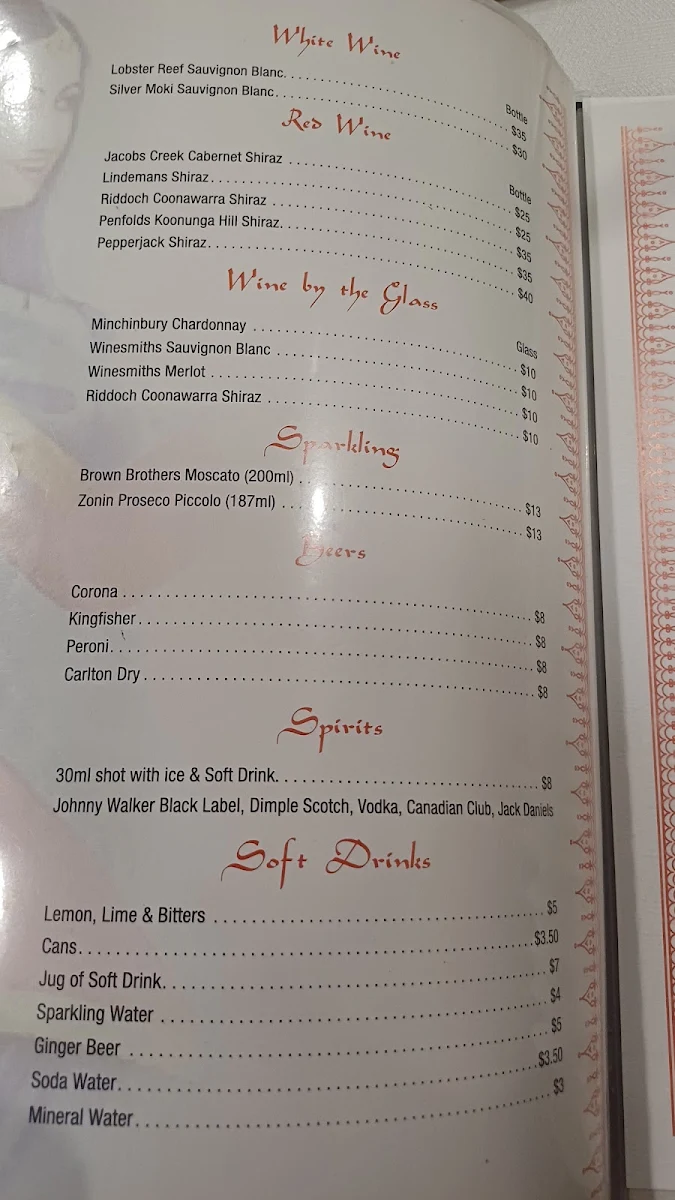 White Wine
Bottle
Lobster Reef Sauvignon Blanc. $35
Silver Moki Sauvignon Blanc. $30
Red Wine
Bottle
Jacobs Creek Cabernet Shiraz $25
Lindemans Shiraz. $25
Riddoch Coonawarra Shiraz $35
Penfolds Koonunga Hill Shiraz. $35
Pepperjack Shiraz. $40
Wine by the Glass
Glass
Minchinbury Chardonnay $10
Winesmiths Sauvignon Blanc $10
Winesmiths Merlot $10
Riddoch Coonawarra Shiraz $10
Sparkling
Brown Brothers Moscato (200ml) $13
Zonin Proseco Piccolo (187ml) $13
Beers
Corona $8
Kingfisher $8
Peroni. $8
Carlton Dry $8
Spirits
30ml shot with ice & Soft Drink. $8
Johnny Walker Black Label, Dimple Scotch, Vodka, Canadian Club, Jack Daniels
Soft Drinks
Lemon, Lime & Bitters $5
Cans. $3.50
Jug of Soft Drink. $7
Sparkling Water $4
Ginger Beer $5
Soda Water. $3.50
Mineral Water. $3